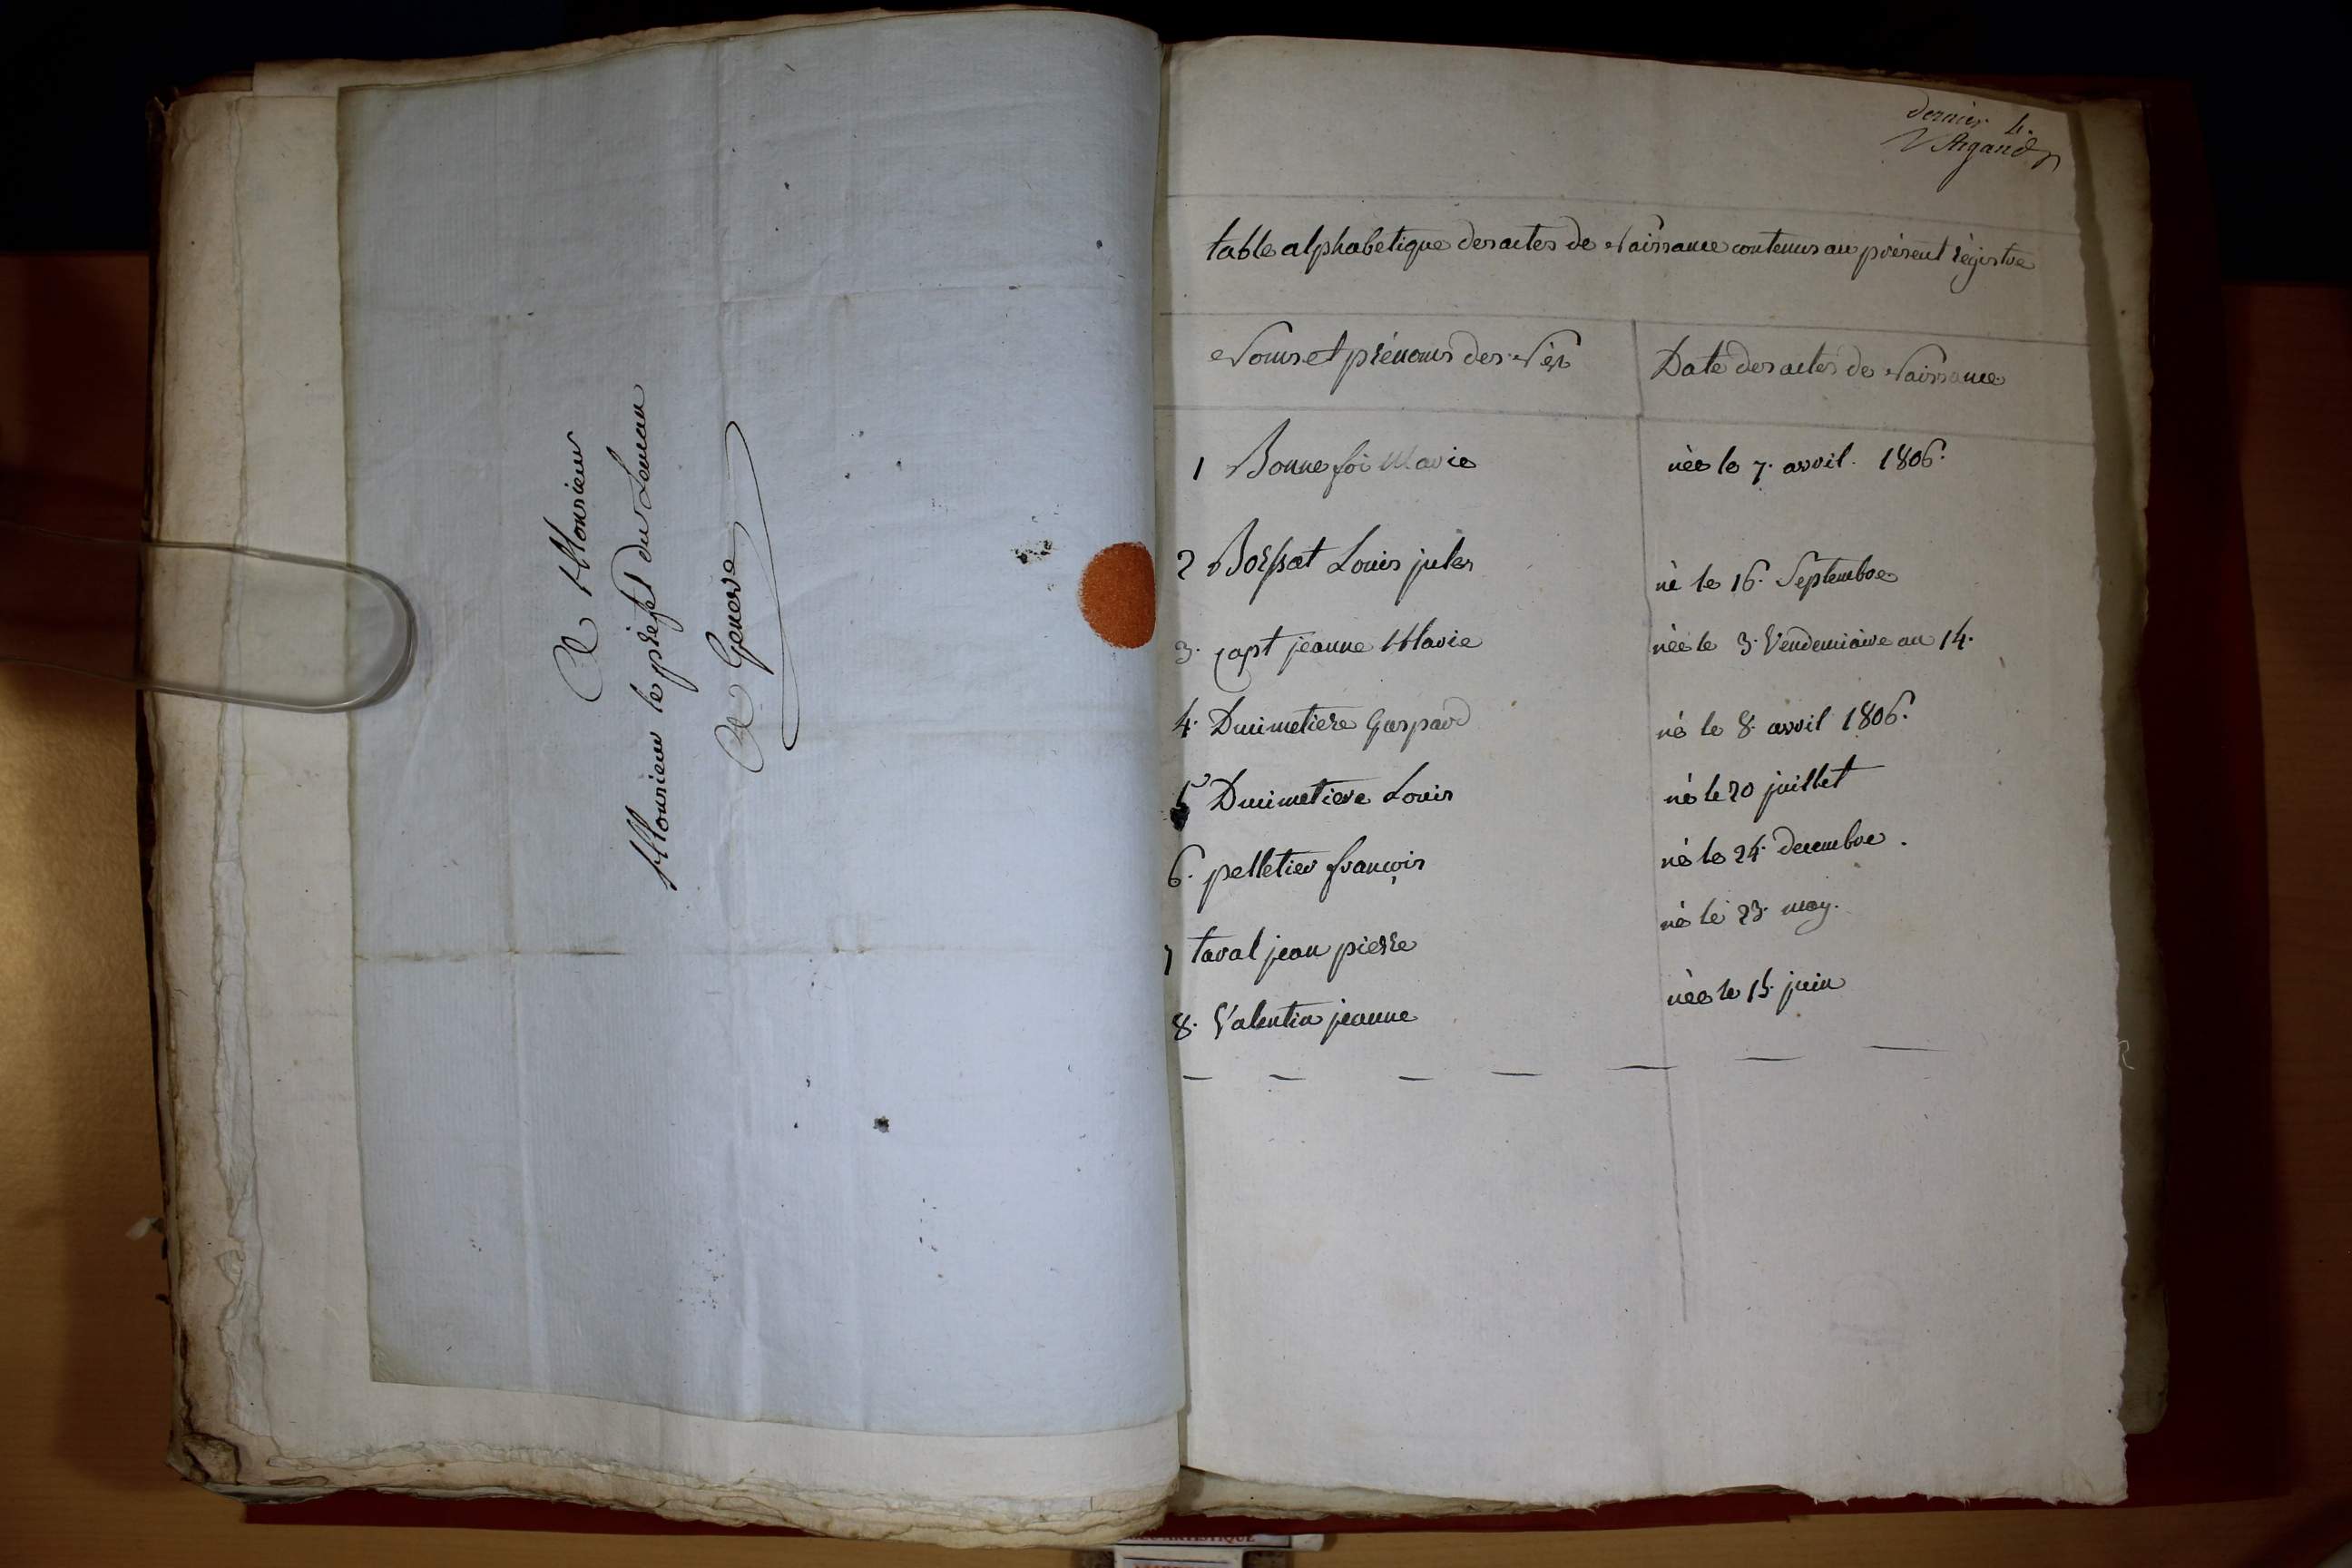 A Monsieur
Monsieur le préfet du Leman
A Geneve
dernier 4.
Argand
table alphabetique des actes de Naissance contenus au présent régistre
Noms et prénoms des Nés
Date des actes de Naissance
1 Bonnefoi Marie
née le 7. avril. 1806.
2 Borssat Louis jules
né le 16. Septembre
3. Capt jeanne Marie
née le 3. Vendemiaire an 14.
4. Dunimetiere Gaspard
né le 8. avril 1806.
5 Dunimetiere Louis
né le 20 juillet
6. pelletier françois
né le 24. decembre.
7 taval jean pierre
né le 23. may.
8. Valentin jeanne
née le 15. juin